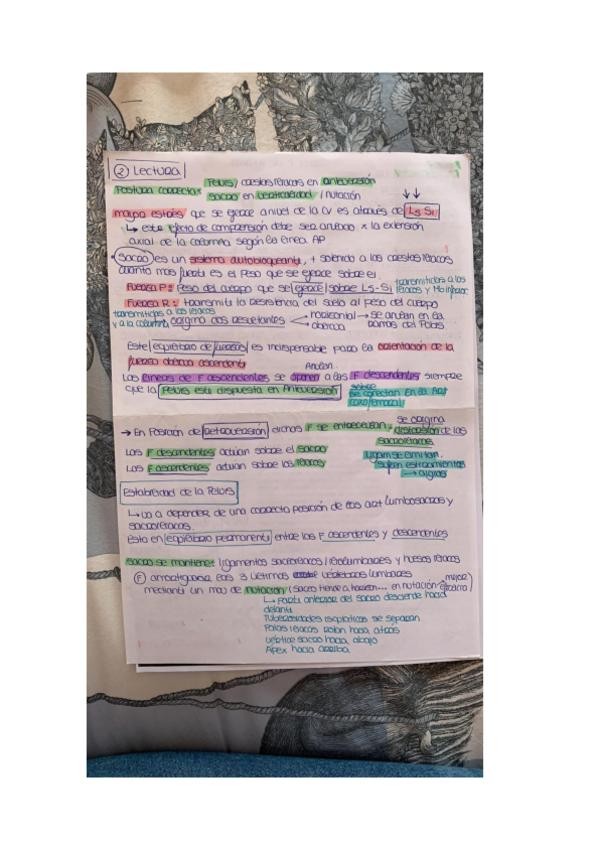 ② Lectura
Pelvis, crestas ilíacas en anteversión
Postura correcta: sacro en verticalidad / nutación
mayor estrés que se ejerce a nivel de la CV es a través de L5 S1
↳ este efecto de compensión debe ser anulado x la extensión
axial de la columna según la línea AP
• Sacro es un sistema autobloqueante, + sólido a las crestas ilíacas
cuanto mas fuerte es el peso que se ejerce sobre el.
Fuerza P: peso del cuerpo que se ejerce sobre L5-S1 transmitidas a los
ilíacos y
Fuerza R: transmite la resistencia del suelo al peso del cuerpo
transmitidas a los ilíacos
y a la columna origina dos resultantes
horizontal → se anulan en la
oblicua ramas del Pubis
Este equilibrio de fuerzas es indispensable para la orientación de la
fuerza oblicua ascendente
Anulan
Las líneas de F ascendentes se oponen a las F descendentes siempre
que la Pelvis está dispuesta en Anteversión
sobre
se conectan en la Art
coxofemoral
→ En Posición de Retroversión dichas F se entrecruzan, se origina
distorsión de las
sacroilíacas
Las F descendentes actúan sobre el sacro
Las F ascendentes actúan sobre los ilíacos
sufren estiramientos
→ algias
Estabilidad de la Pelvis
↳ va a depender de una correcta posición de las art lumbosacras y
sacroilíacas.
Esta en equilibrio permanente entre las F ascendentes y descendentes
Sacro se mantiene: ligamentos sacroilíacos / iliolumbares y huesos ilíacos
Ⓕ amortiguora las 3 últimas vértebras lumbares
mediante un mov de nutación (sacro tiende a en nutación mejor
↳ Parte anterior del sacro desciende hacia
delante
Tuberosidades isquiáticas se separan
Palas ilíacas rotan hacia atrás
Vértice sacro hacia abajo
Apex hacia arriba